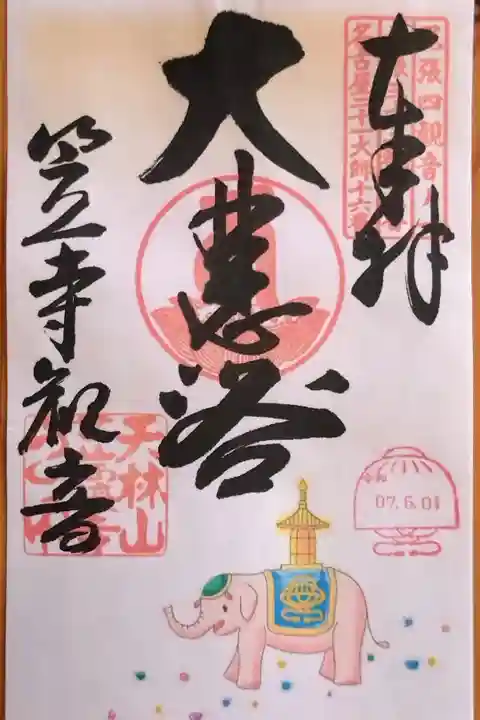 奉拝
大悲浴
笠寺観音
尾張四観音
名古屋二十一大師十六番
天林山
令和
07.6.01